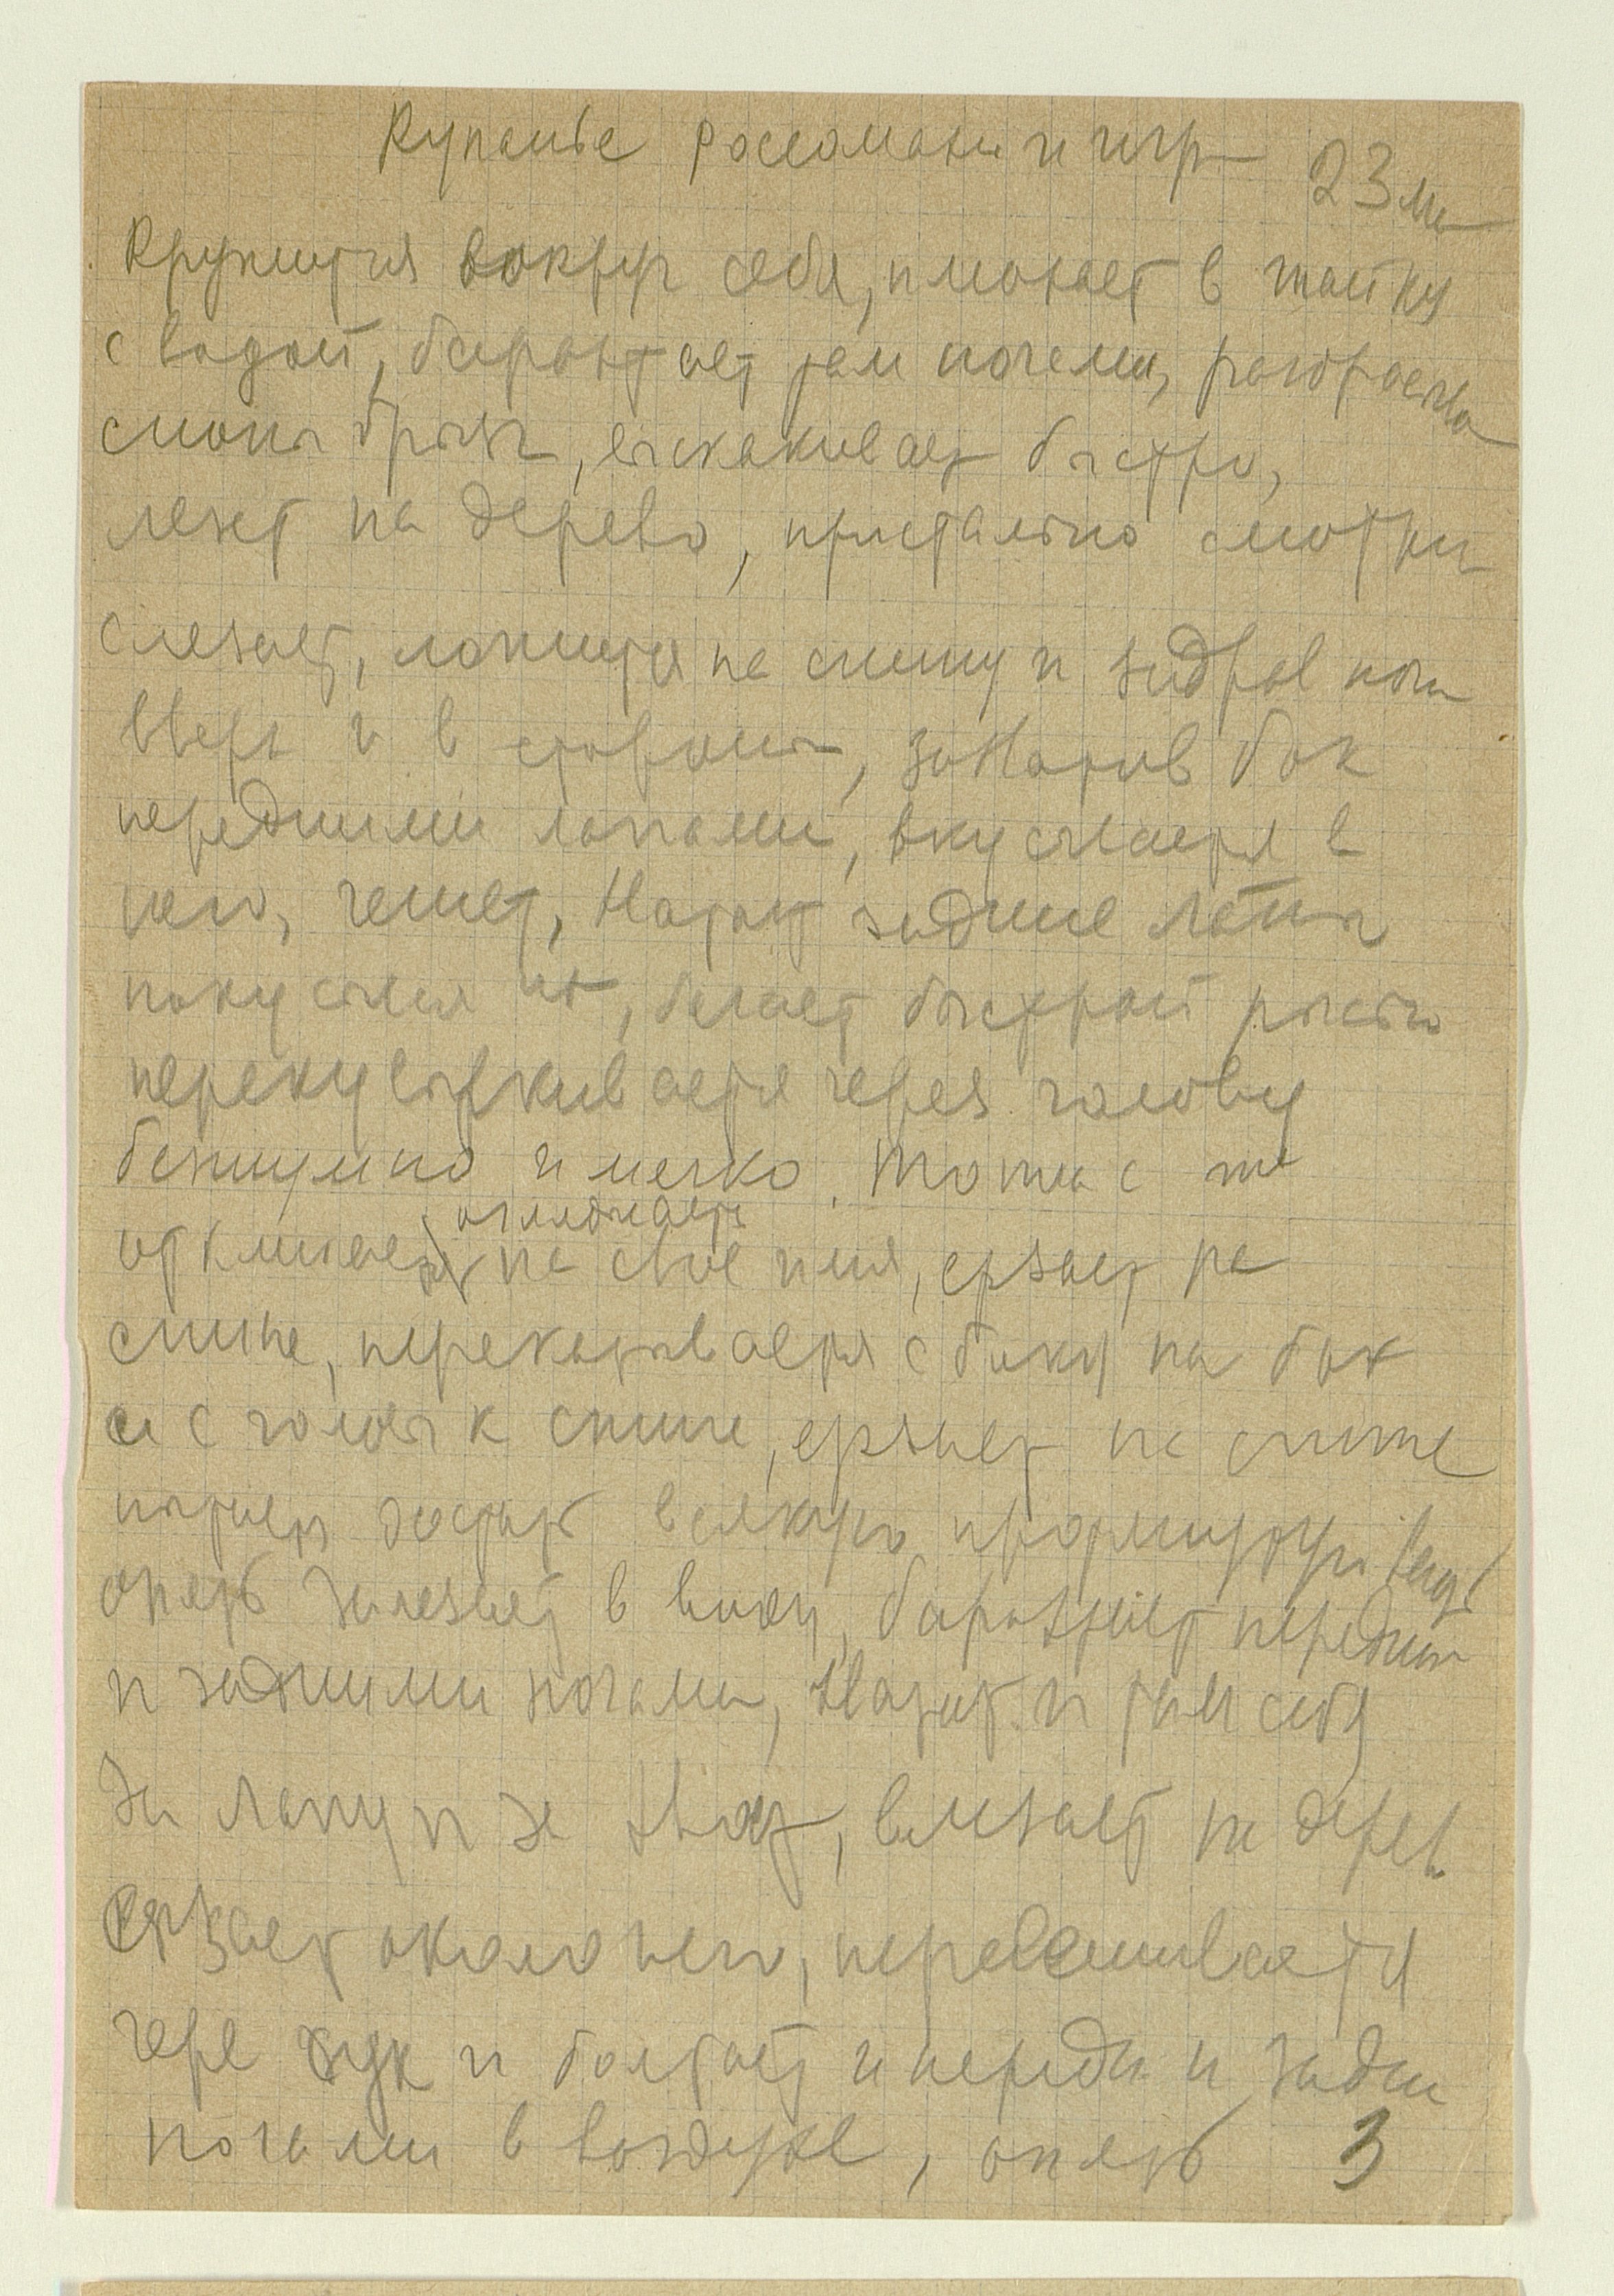 Купанье россомахи и игр
23 м
Кружится вокруг себя, плюхает в шайку
с водой, барахтает там ногами, разбрасыва
снопы брызг, выскакивает быстро,
лезет на дерево, пристально смотри
слезает, ложится на спину и задрав ноги
вверх и в стороны, захватив бок
передними лапами, вкусывается в
него, чешет, хватает задние лапы
покусывая их, бегает быстрой рысью
перекувыркивается через голову
бесшумно и легко. Тотчас же
откликается на свое имя, ерзает на
оглядывается
спине, перекатывается с боку на бок
и с головы к спине, ерзает на спине
достать всякую протянутую вещь
опять залезает в воду, барахтает передним
и задними ногами, хватает и там себя
за лапу и за хвост, влезает на дерев
ерзает около него, перевешивается
чере сук и болтает и передн и задни
ногами в воздухе, опять 3